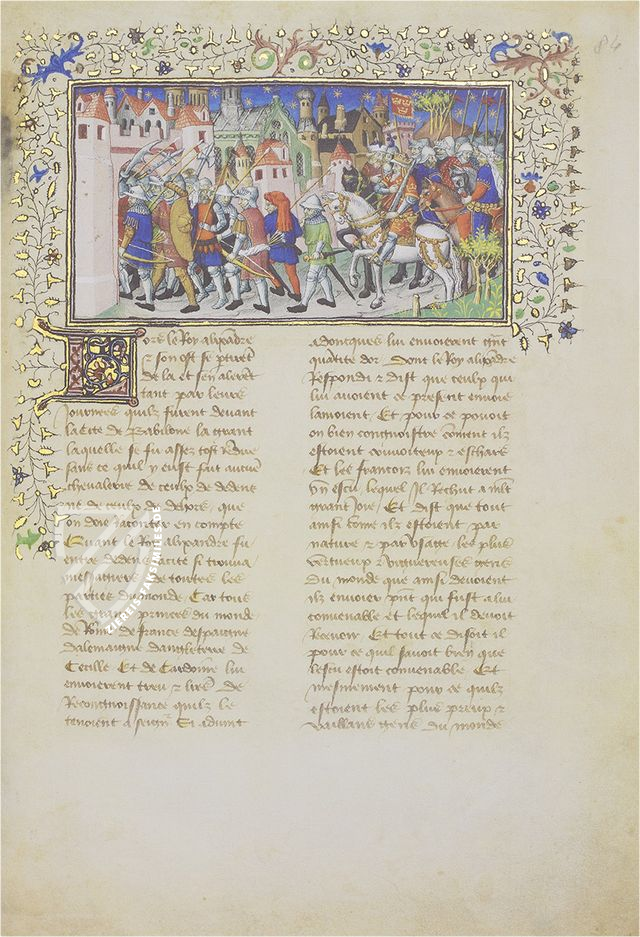 84
Lors le Roy alixandre
& son ost se ptirent
de la et sen alerent
tant par leurs
Journees quilz furent devant
la Cite de Babilone la grant
laquelle se fu assez tost Rendue
sans ce quil y eust fait aucune
chevalerie de ceulx de dedens
ne de ceulx de dehors que
on doie raconter en compte
Quant le Roy alixandre fu
entre dedens la cite si trouva
messagiers de toutes les
parties du monde Car tous
les grans princes du monde
de Romme de france despaigne
dalemaigne dangleterre de
Cecille Et de Sardonne lui
envoierent treu & lires De
Recongnoissance quilz le
tenoient a seigneur Si advint
adoncques lui envoierent grant
quantite dor Dont le Roy alixandre
Respondi & dist que ceulx qui
lui avoient ce present envoie
lamoient Et pour ce pouoit
on bien congnoistre comment ilz
estoient convoiteux & eschars
Et les francois lui envoierent
Vn escu lequel Il Rechut a moult
grant Joie Et dist que tout
ainsi comme ilz estoient par
nature & par vsage les plus
vertueux & viguereuses gens
Du monde que ainsi devoient
ilz envoier pnt qui fust a lui
convenable et lequel il devoit
Recevoir Et tout ce disoit il
pour ce quil savoit bien que
lescu estoit convenable Et
mesmement pour ce quilz
estoient les plus preux &
vaillans gens du monde
ZIEREIS FAKSIMILES.DE